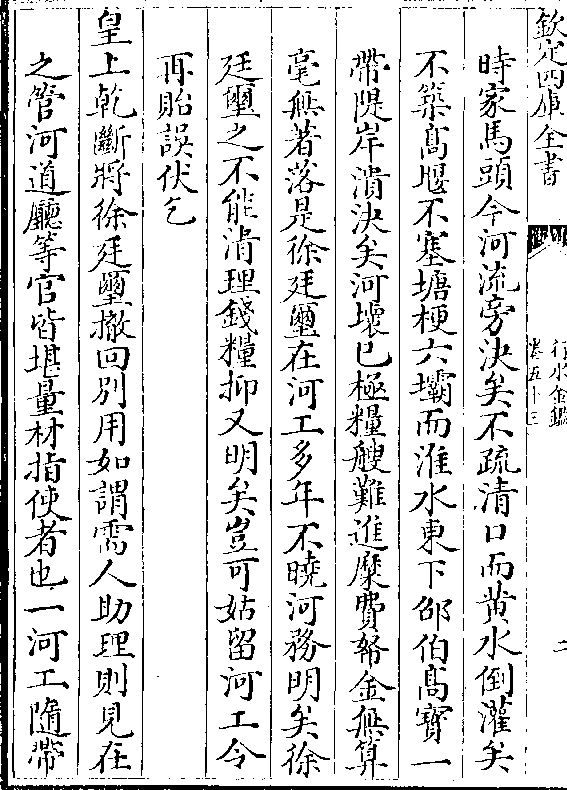 欽定四庫全書
行水金鑑
卷五十三
二
時家馬頭今河流旁決矣不疏清口而黃水倒灌矣
不築高堰不塞塘梗六壩而淮水東下邵伯高寶一
帶隄岸潰決矣河壞已極糧艘難進糜費帑金無算
毫無著落是徐廷璽在河工多年不曉河務明矣徐
廷璽之不能清理錢糧抑又明矣豈可姑留河工令
再貽誤伏乞
皇上乾斷將徐廷璽撤回别用如謂需人助理則見在
之管河道廳等官皆堪量材指使者也一河工隨帶